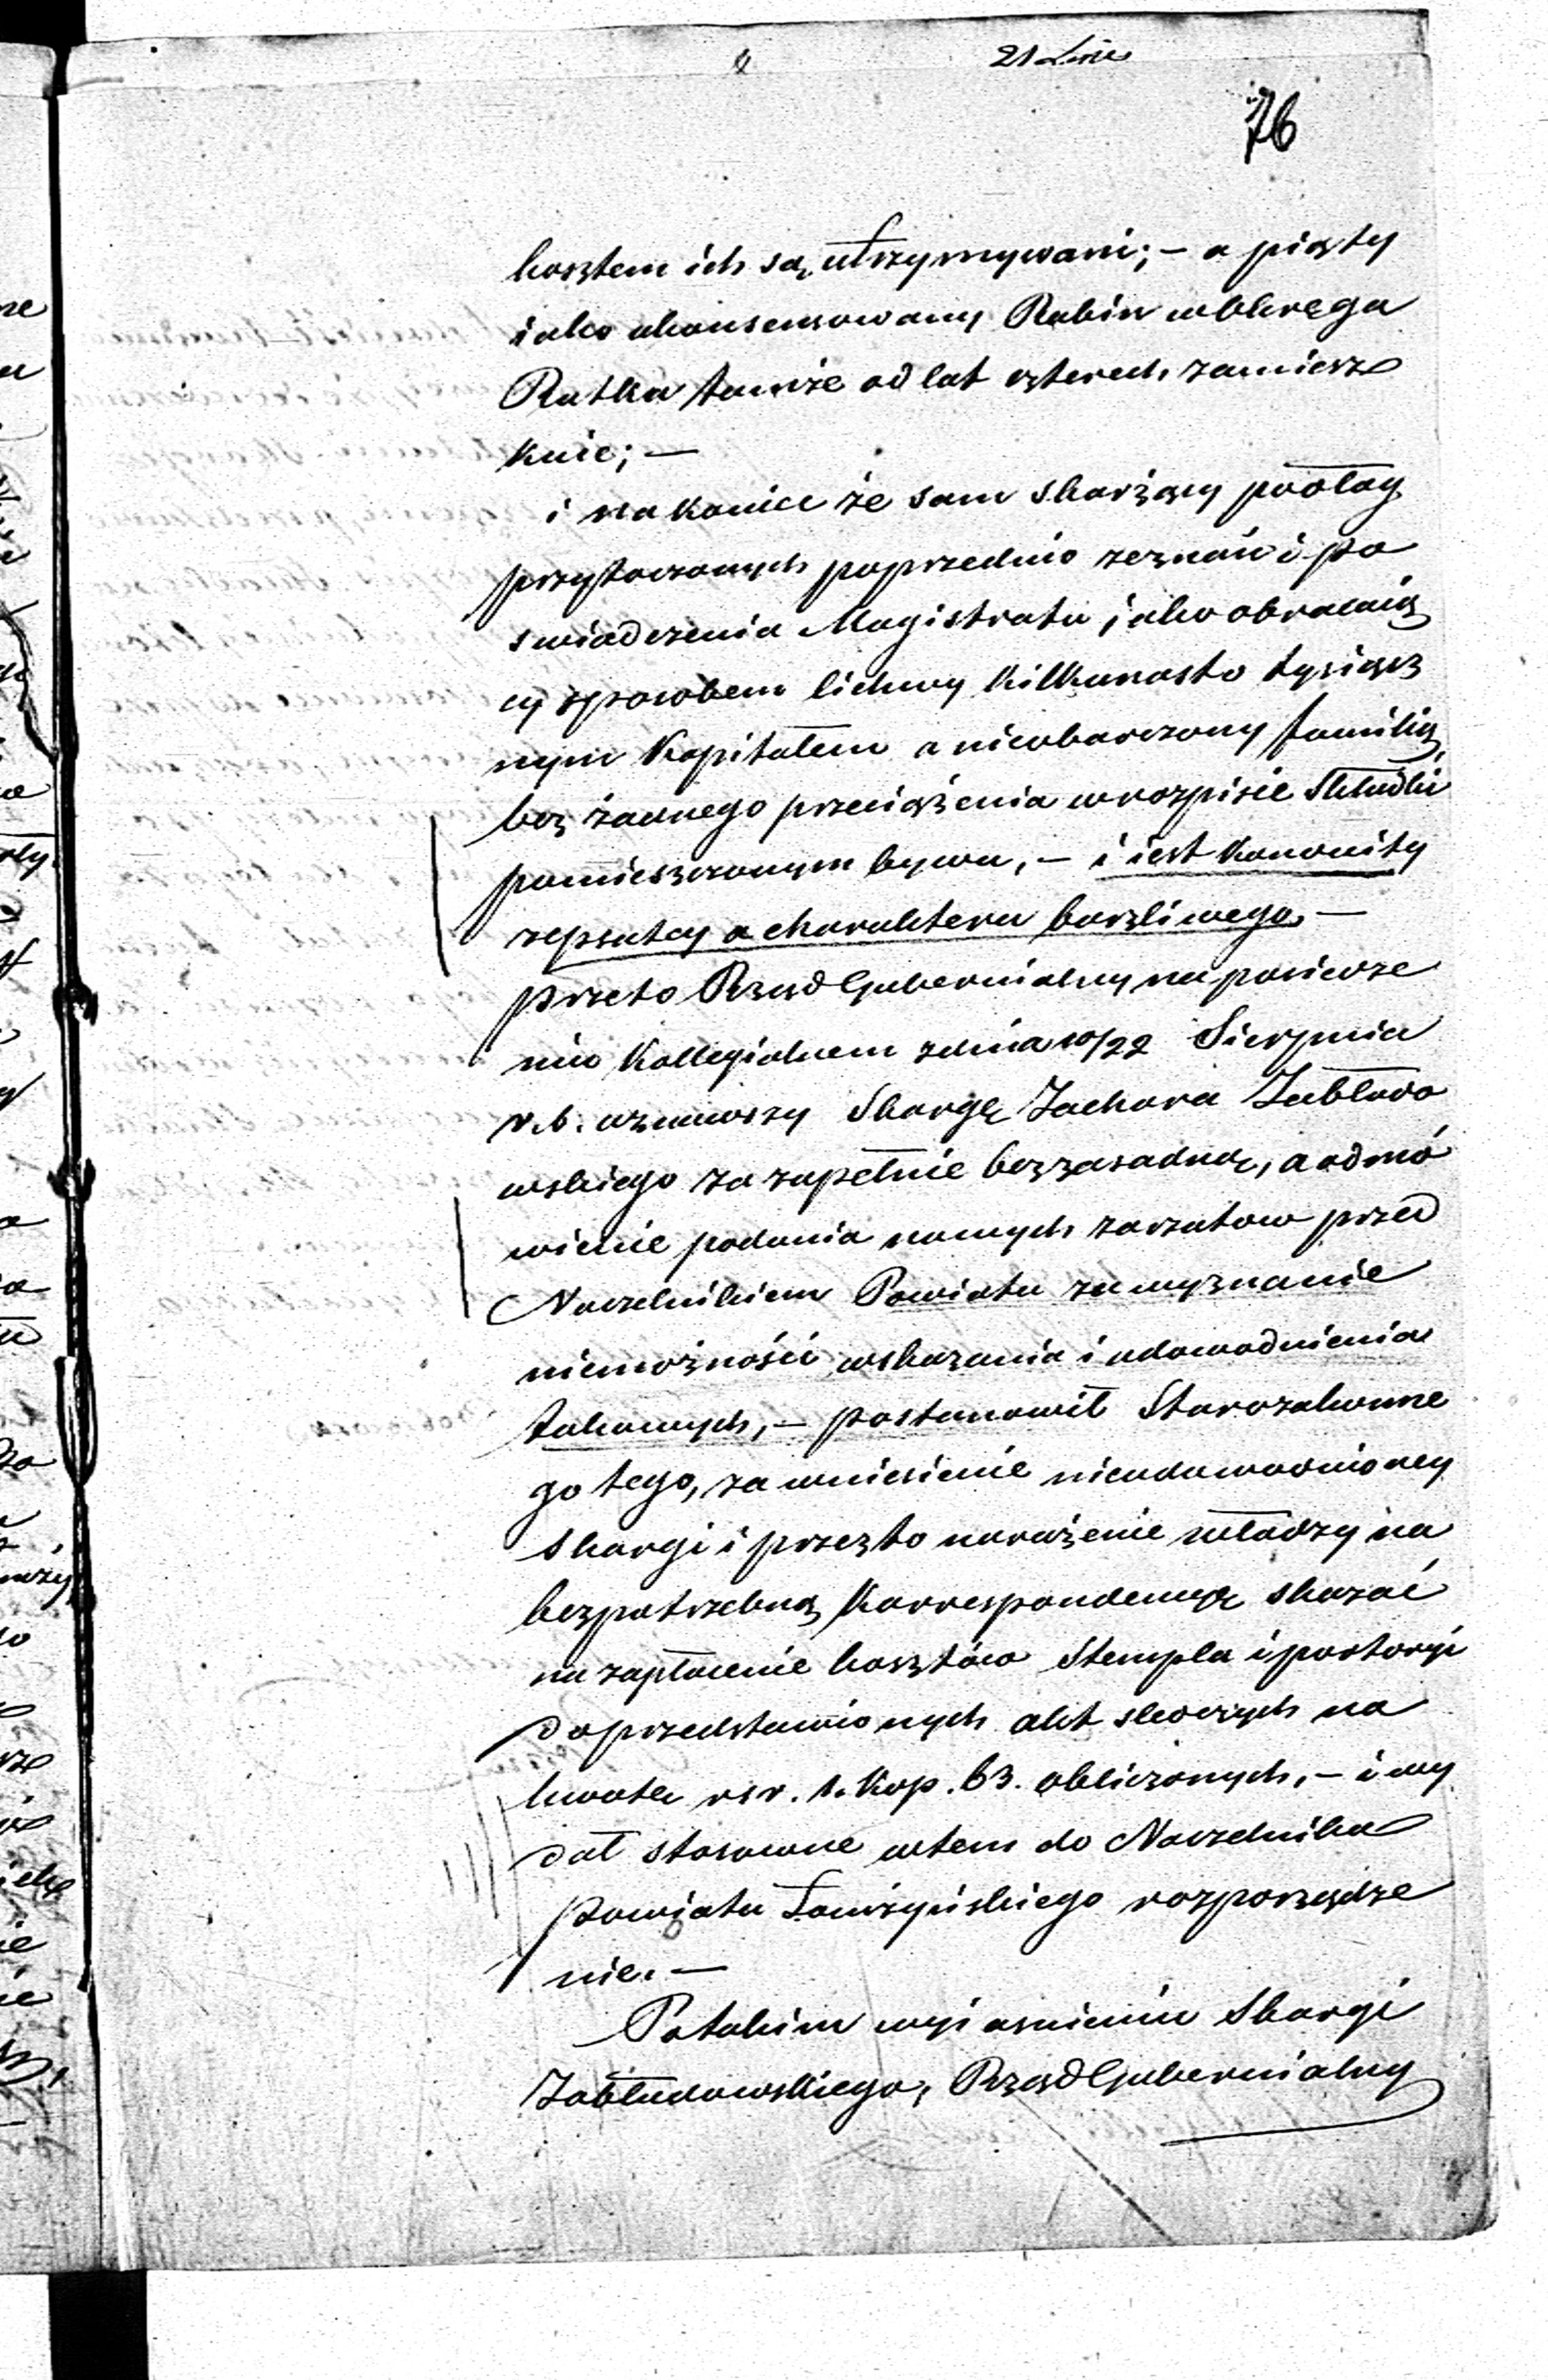 76
kosztem ich są utrzymywani; – a piąty
iako ukonsensowany Rabin w okręgu
Rutka tamże od lat czterech zamiesz
kuie; –
i na koniec że sam skarżący podług
przytoczonych poprzednio zeznań i po
swiadczenia Magistratu jako obracaią
cy sposobem lichwy kilkunasto tysiącz
nym kapitałem a nieobarczony familią,
bez żadnego przeciążenia w rozpisie Składki
pomieszczonym bywa, – i iest konowity
zepsutey a charakteru burzliwego –
przeto Rząd Gubernialny na posiedze
niu Kollegialnem z dnia 10/22 Sierpnia
r. b. uznawszy Skargę Zachara Zabłudo
wskiego za zupełnie bezzasadną, a odmó
wienie podania nowych zarzutow przed
Naczelnikiem Powiatu za wyznanie
niemożności wskazania i udowodnienia
takowych, – postanowił Starozakonne
go tego, za wniesienie nieudowodnioney
skargi i przez to narażenie władzy na
bezpotrzebną Korrespondencyę skazać
na zapłacenie kosztów Stempla i portoryi
do przedstawionych akt sledczych na
kwotę rsr. 1. kop. 63. obliczonych, – i wy
dał stosowne w tem do Naczelnika
Powiatu Łomżyńskiego rozporządze
nie. –
Po takim wyiasnieniu Skargi
Zabłudowskiego, Rząd Gubernialny